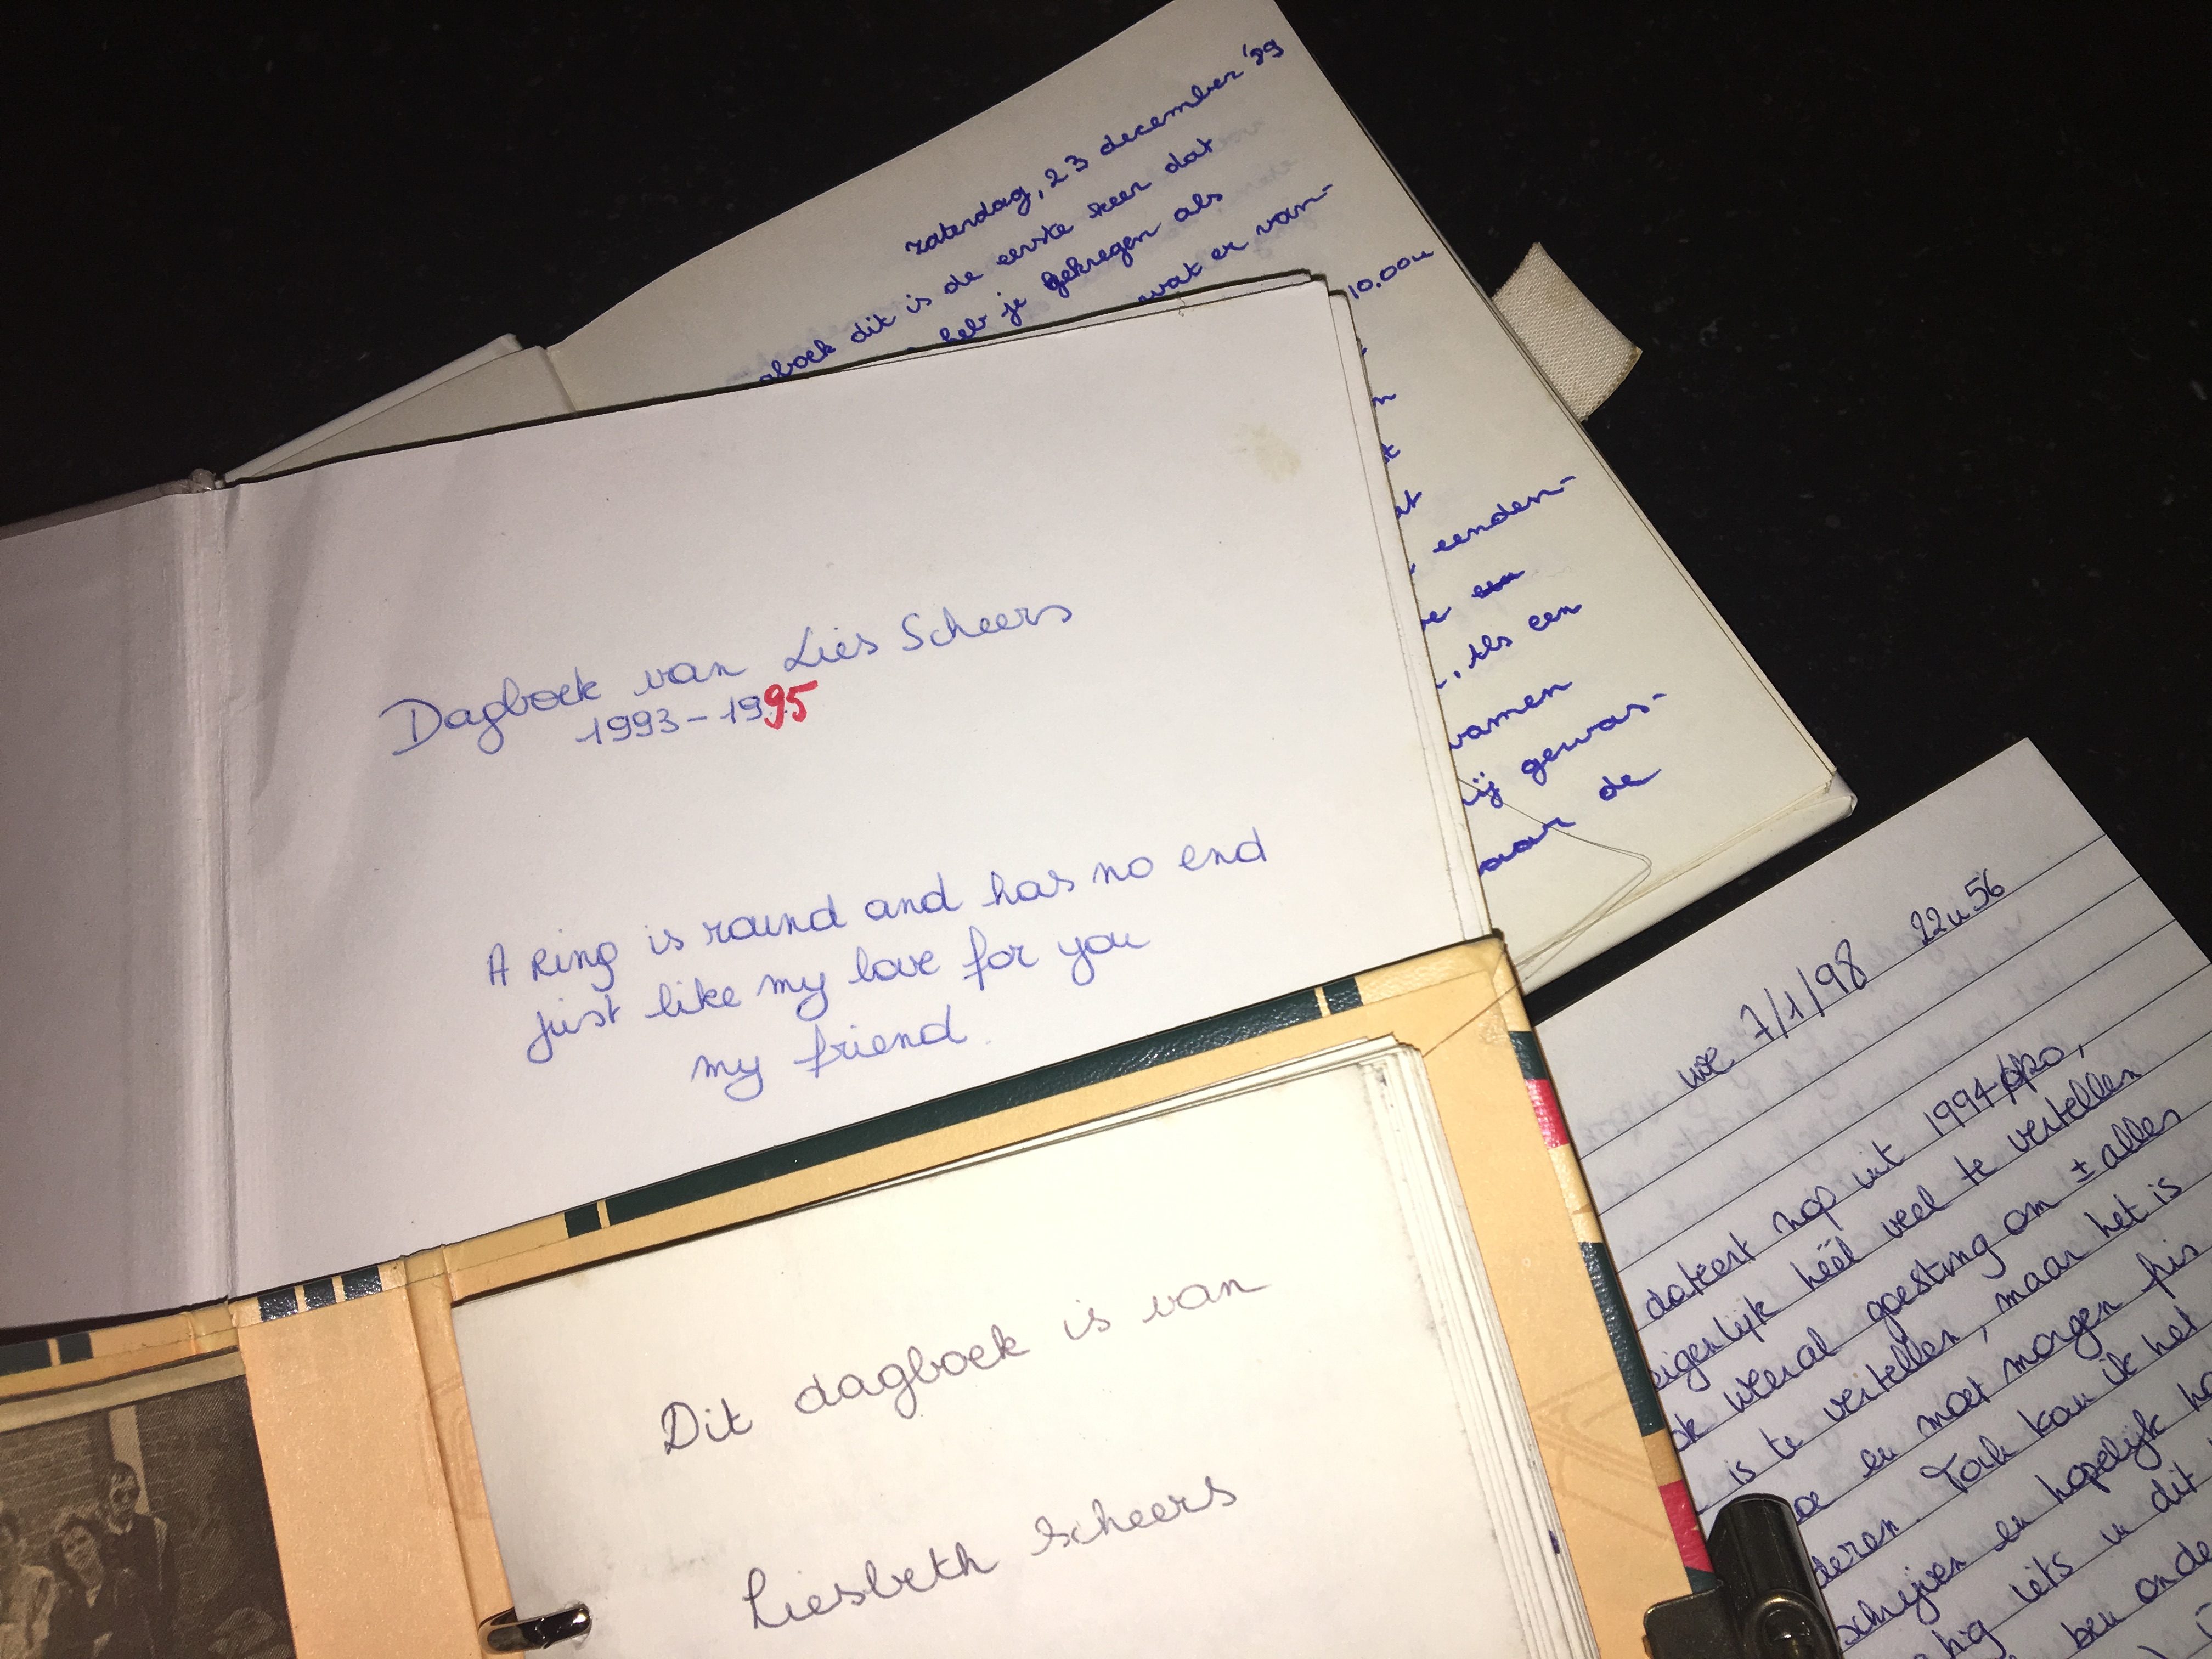 zaterdag, 23 december '89
dit is de eerste keer dat
heb je gekregen als
wat er van-
10.00u
eenden-
een
. Als een
gewas-
de
Dagboek van Lies Scheers
1993-1995
A Ring is round and has no end
just like my love for you
my friend.
Dit dagboek is van
Liesbeth Scheers
woe 7/1/98 22u56
dateert nog uit 1994
eigenlijk héél veel te vertellen
weeral goesting om ± alles
is te vertellen, maar het is
en moet morgen fris
. Toch kan ik het
schrijven en hopelijk
iets in dit
ben